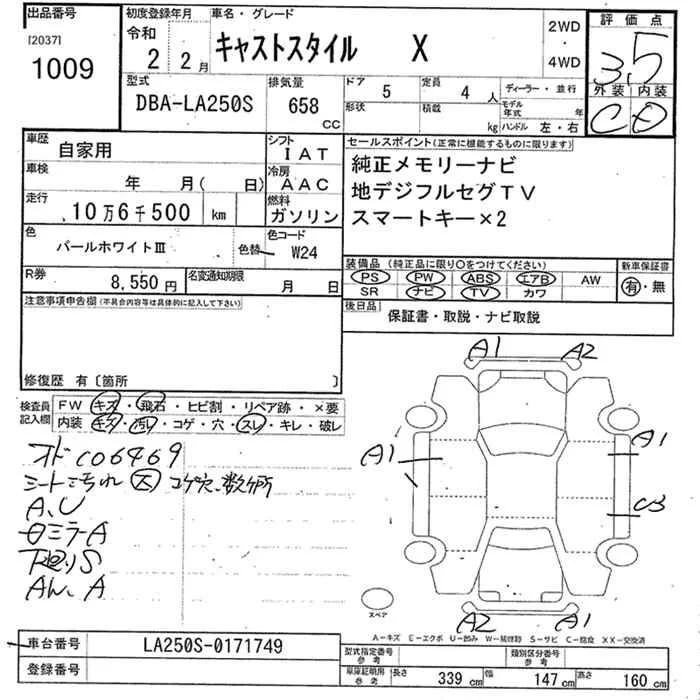 出品番号
[2037]
1009
初度登録年月
令和
2 2月
車名・グレード
キャストスタイル X
2WD
・
4WD
評価点
3.5
外装 内装
C D
型式
DBA-LA250S
排気量
658
CC
ドア
5
定員
4 人
形状
積載
kg
ディーラー・並行
モデル
年式 年
ハンドル 左・右
車歴
自家用
シフト
IAT
車検
年 月( 日)
冷房
AAC
走行
10万6千500 km
燃料
ガソリン
色
パールホワイトⅢ
色替
色コード
W24
R券
8,550円
名変通知期限
月 日
セールスポイント(正常に機能するものに限ります)
純正メモリーナビ
地デジフルセグTV
スマートキー×2
装備品 (純正品に限り○をつけてください)
PS PW ABS エアB AW
SR ナビ TV カワ
新車保証書
有・無
後日品
保証書・取説・ナビ取説
注意事項申告欄(不具合内容等は具体的に記入して下さい)
修復歴 有〔箇所 〕
検査員
記入欄
FW キズ・飛石・ヒビ割・リペア跡・×要
内装 キズ・汚レ・コゲ・穴・スレ・キレ・破レ
オド C06469
シート汚れ 大 コゲ穴 数ヶ所
A、U
ロミラーA
下廻りS
AW、A
A1 A2
A1
A1
C3
A2 A1
スペア
A-キズ E-エクボ U-凹み W-補修跡 S-サビ C-腐食 XX-交換済
車台番号
LA250S-0171749
登録番号
型式指定番号
参考
類別区分番号
参考
車庫証明用
参考
長さ 339 cm 幅 147 cm 高さ 160 cm